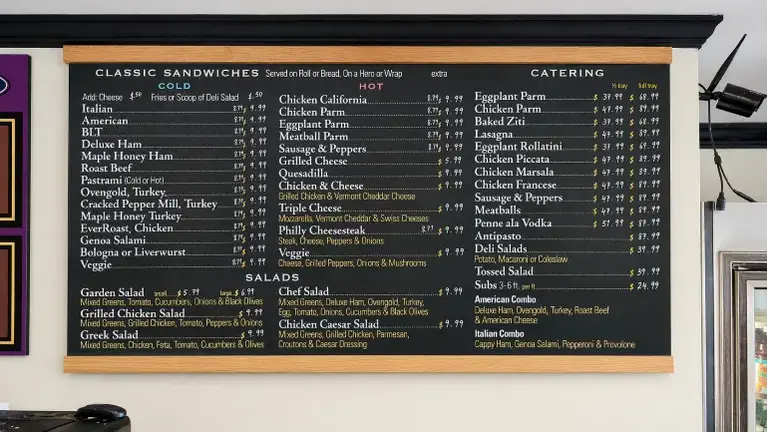 CLASSIC SANDWICHES Served on Roll or Bread. On a Hero or Wrap extra
COLD
Add: Cheese .50 Fries or Scoop of Deli Salad .50
Italian 8.79 $ 9.99
American 8.79 $ 9.99
BLT 8.79 $ 9.99
Deluxe Ham 8.79 $ 9.99
Maple Honey Ham 8.79 $ 9.99
Roast Beef 8.79 $ 9.99
Pastrami (Cold or Hot) 8.79 $ 9.99
Ovengold, Turkey 8.79 $ 9.99
Cracked Pepper Mill, Turkey 8.79 $ 9.99
Maple Honey Turkey 8.79 $ 9.99
EverRoast, Chicken 8.79 $ 9.99
Genoa Salami 8.79 $ 9.99
Bologna or Liverwurst 8.79 $ 9.99
Veggie 8.79 $ 9.99
HOT
Chicken California 8.79 $ 9.99
Chicken Parm 8.79 $ 9.99
Eggplant Parm 8.79 $ 9.99
Meatball Parm 8.79 $ 9.99
Sausage & Peppers 8.79 $ 9.99
Grilled Cheese $ 5.99
Quesadilla $ 9.99
Chicken & Cheese $ 9.99
Grilled Chicken & Vermont Cheddar Cheese
Triple Cheese $ 9.99
Mozzarella, Vermont Cheddar & Swiss Cheeses
Philly Cheesesteak $ 9.99
Steak, Cheese, Peppers & Onions
Veggie $ 9.99
Cheese, Grilled Peppers, Onions & Mushrooms
SALADS
Garden Salad small $ 5.99 large $ 6.99
Mixed Greens, Tomato, Cucumbers, Onions & Black Olives
Grilled Chicken Salad $ 9.99
Mixed Greens, Grilled Chicken, Tomato, Peppers & Onions
Greek Salad $ 9.99
Mixed Greens, Chicken, Feta, Tomato, Cucumbers & Olives
Chef Salad $ 9.99
Mixed Greens, Deluxe Ham, Ovengold, Turkey,
Egg, Tomato, Onions, Cucumbers & Black Olives
Chicken Caesar Salad $ 9.99
Mixed Greens, Grilled Chicken, Parmesan,
Croutons & Caesar Dressing
CATERING
½ tray full tray
Eggplant Parm $ 37.99 $ 68.99
Chicken Parm $ 47.99 $ 89.99
Baked Ziti $ 37.99 $ 69.99
Lasagna $ 47.99 $ 89.99
Eggplant Rollatini $ 37.99 $ 69.99
Chicken Piccata $ 47.99 $ 89.99
Chicken Marsala $ 47.99 $ 89.99
Chicken Francese $ 47.99 $ 89.99
Sausage & Peppers $ 47.99 $ 89.99
Meatballs $ 47.99 $ 89.99
Penne ala Vodka $ 57.99 $ 89.99
Antipasto $ 89.99
Deli Salads $ 39.99
Potato, Macaroni or Coleslaw
Tossed Salad $ 39.99
Subs 3-6 ft. per ft. $ 24.99
American Combo
Deluxe Ham, Ovengold, Turkey, Roast Beef
& American Cheese
Italian Combo
Cappy Ham, Genoa Salami, Pepperoni & Provolone